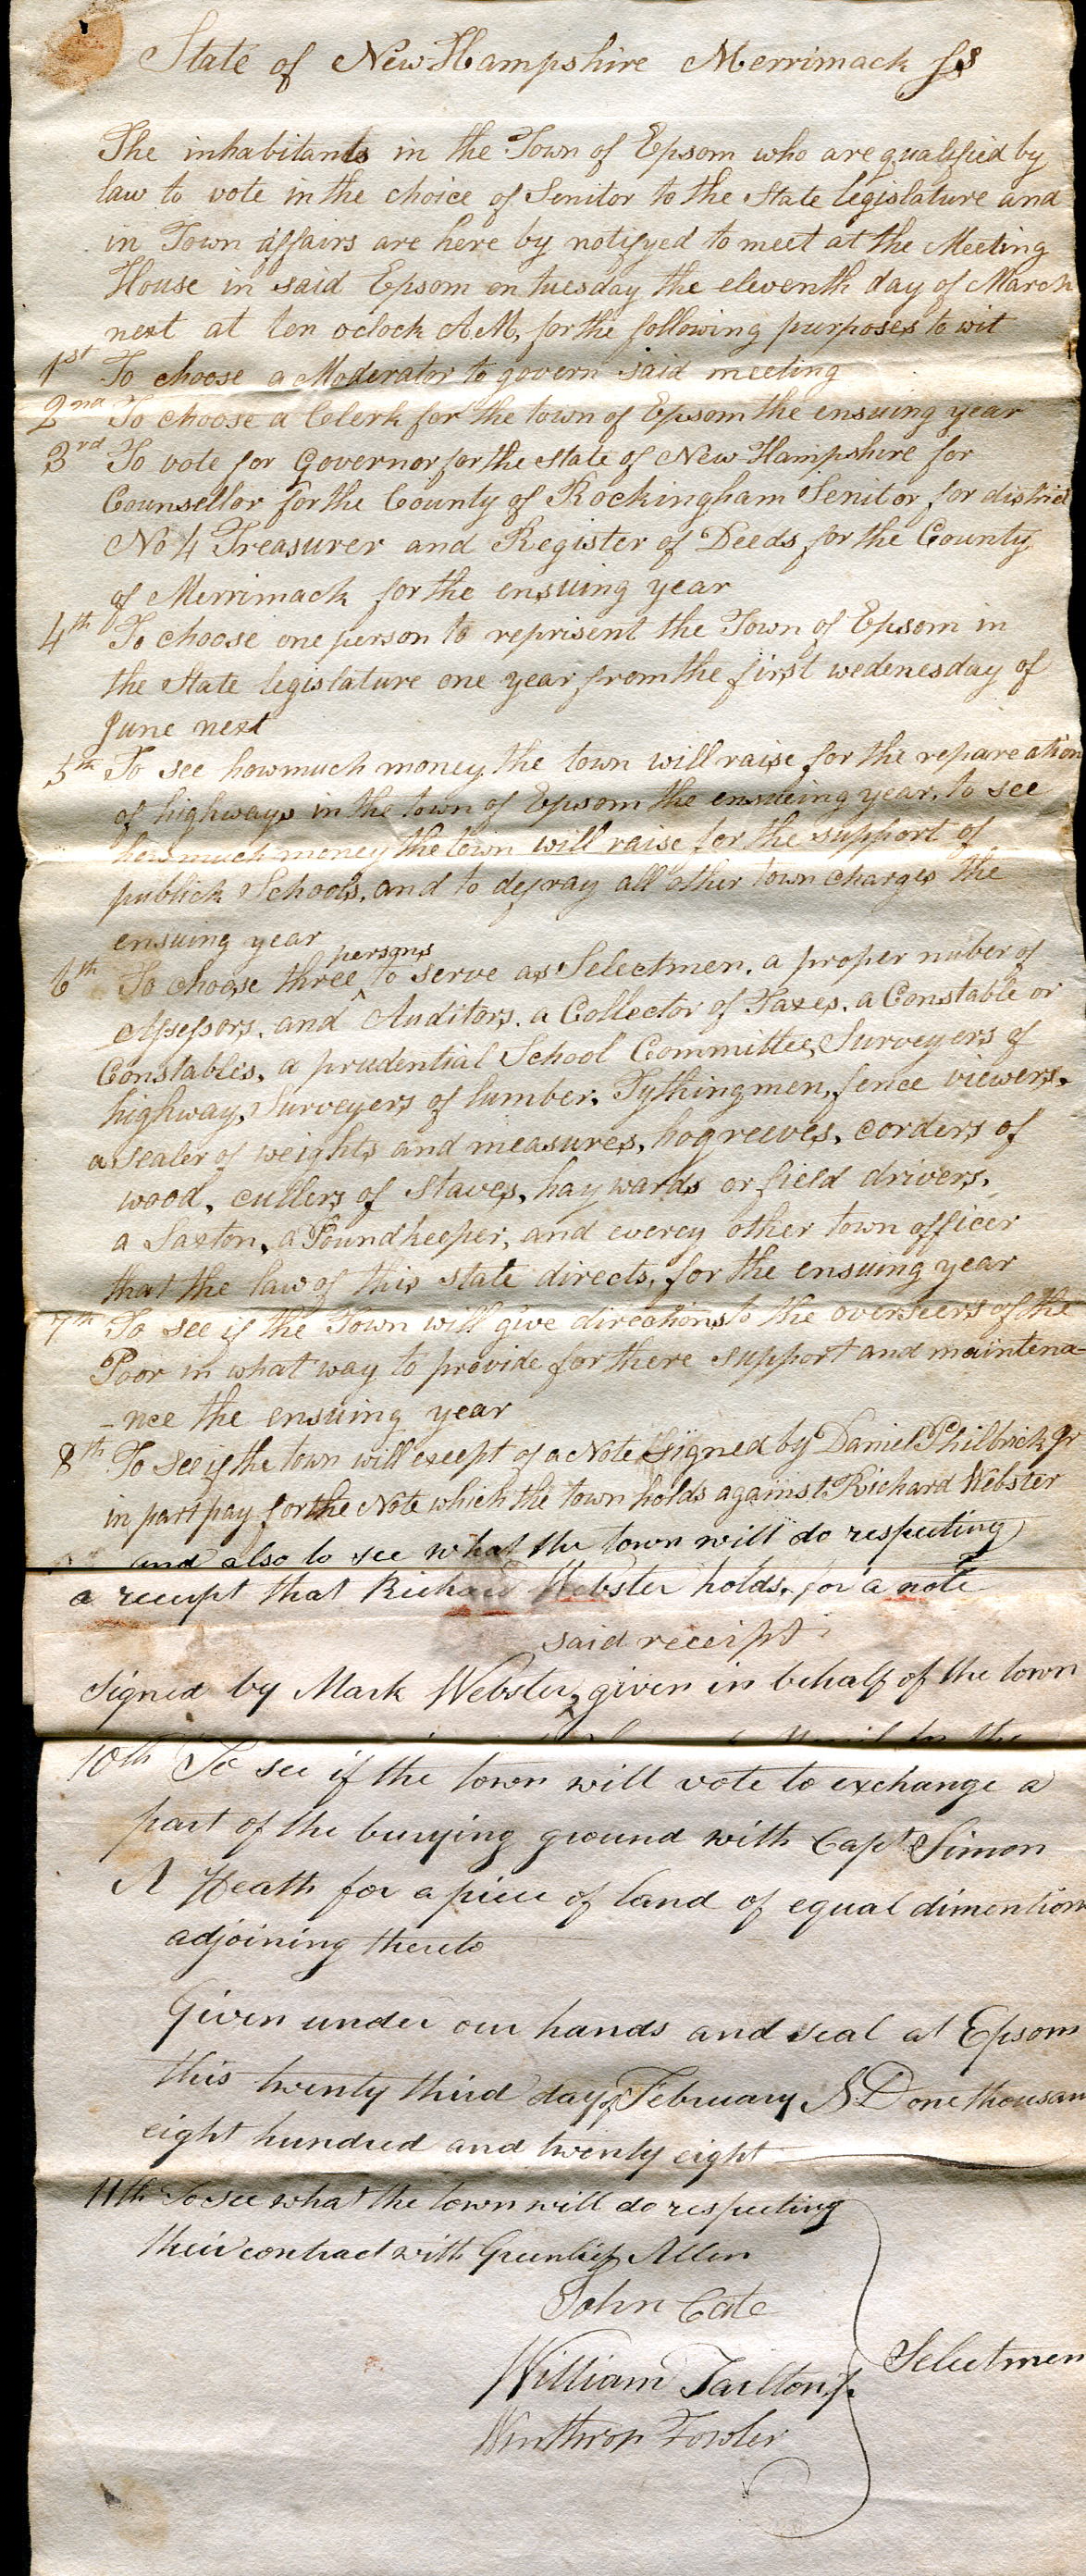 State of New Hampshire Merrimack ss
The inhabitants in the Town of Epsom who are qualified by
law to vote in the choice of Senitor to the State legislature and
in Town affairs are here by notifyed to meet at the Meeting
House in said Epsom on tuesday the eleventh day of March
next at ten oclock A.M, for the following purposes to wit
1st To choose a Moderator to govern said meeting
2nd To choose a Clerk for the town of Epsom the ensuing year
3rd To vote for Governor for the state of New Hampshire for
Counsellor for the County of Rockingham Senitor for district
No 4 Treasurer and Register of Deeds for the County
of Merrimack for the ensuing year
4th To choose one person to reprisent the Town of Epsom in
the State legislature one year from the first wedenesday of
June next
5th To see how much money the town will raise for the repareation
of highways in the town of Epsom the ensueing year, to see
how much money the town will raise for the support of
publick Schools, and to defray all other town charges the
ensuing year
persons
6th To choose three ^ to serve as Selectmen, a proper nuber of
Assessors, and Auditors, a Collector of Taxes, a Constable or
Constables, a prudential School Committee, Surveyers of
highway, Surveyers of lumber, Tythingmen, fence viewers,
a sealer of weights and measures, hogreeves, corders of
wood, cullers of staves, haywards or field drivers,
a Saxton, a Poundkeeper, and everey other town officer
that the law of this state directs, for the ensuing year
7th To see if the Town will give directions to the overseers of the
Poor in what way to provide for there support and maintena=
-nce the ensuing year
8th To see if the town will except of a Note signed by Daniel Philbrick Jr
in part pay for the Note which the town holds against Richard Webster
and also to see what the town will do respecting
a receipt that Richard Webster holds, for a note
said receipt
signed by Mark Webster ^ given in behalf of the town
10th To see if the town will vote to exchange a
part of the burying ground with Capt Simon
A Heath for a piece of land of equal dimentions
adjoining thereto
Given under our hands and seal at Epsom
this twenty third day of February A.D one thousan
eight hundred and twenty eight
11th To see what the town will do respecting
their contract with Greenlief Allen
John Cate
William Tarlton Jr
Selectmen
Winthrop Fowler